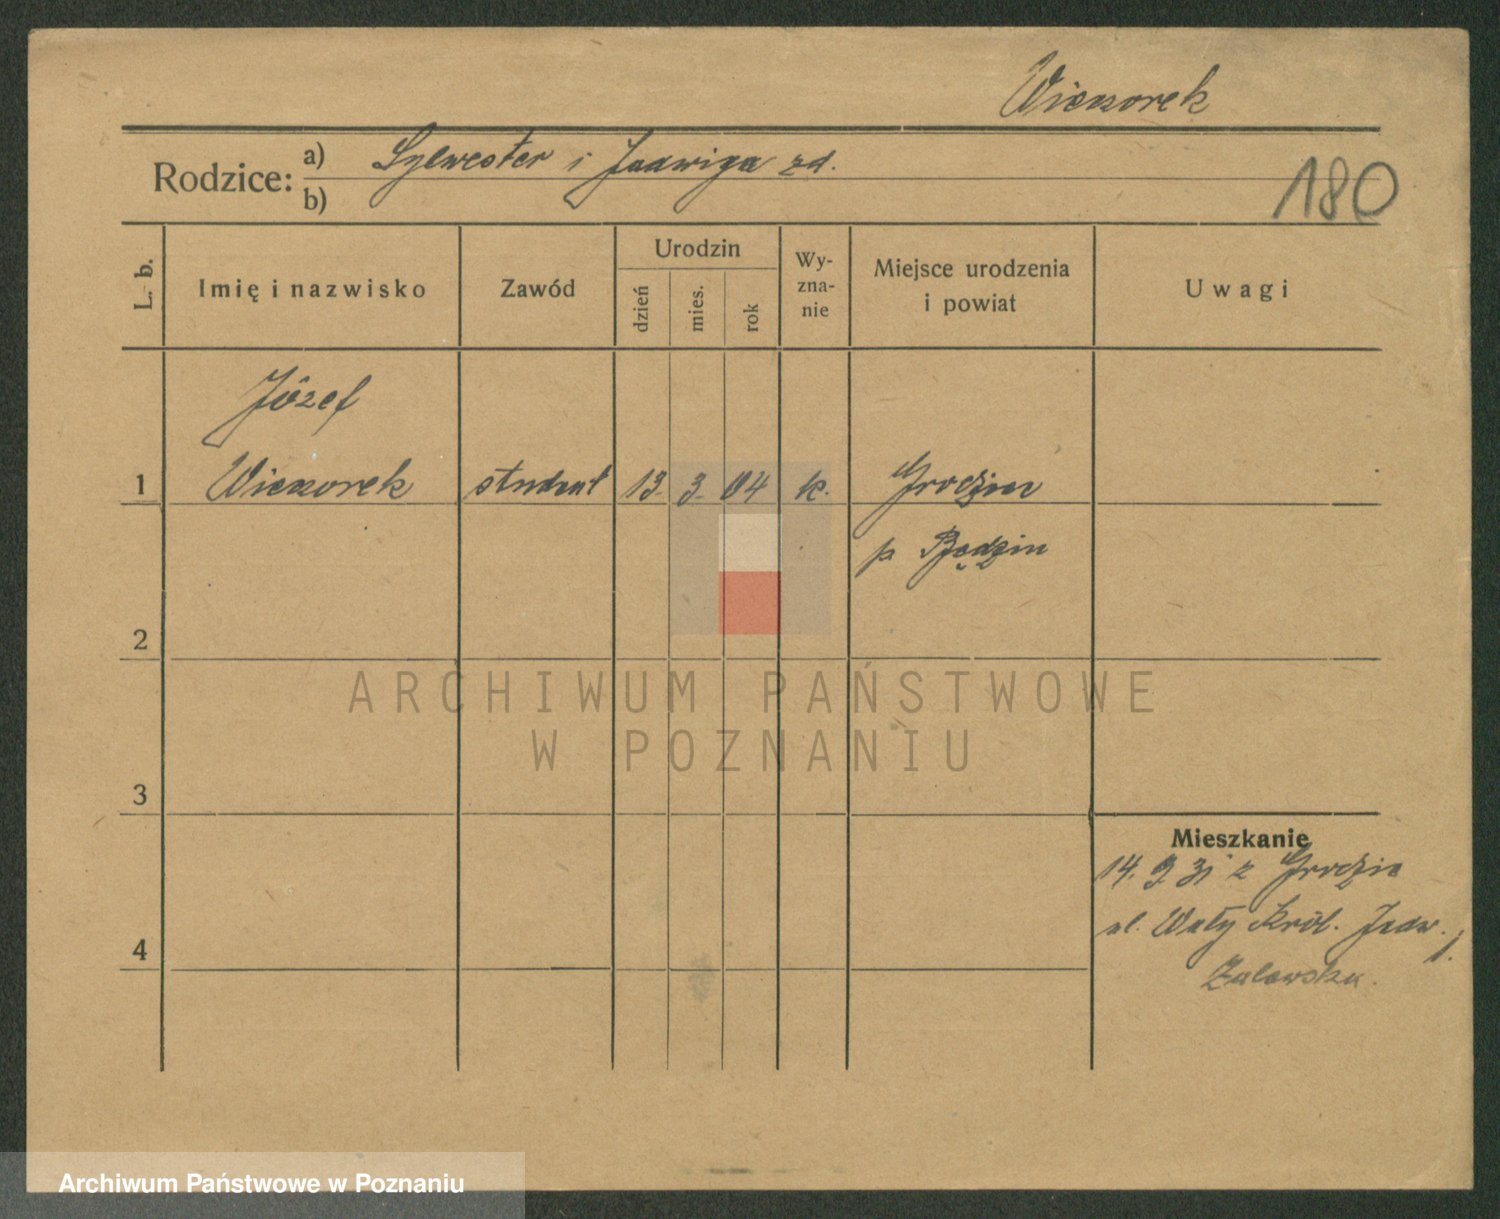 Wieczorek
Rodzice: a) Sylwester i Jadwiga zd.
b)
180
L. b. Imię i nazwisko Zawód Urodzin dzień mies. rok Wy-zna-nie Miejsce urodzenia i powiat Uwagi
Józef
1 Wieczorek student 13 3. 04 k. Grodziec
p Będzin
2
ARCHIWUM PAŃSTWOWE
W POZNANIU
3
Mieszkanie
14. 9 31 z Grodzie
ul. Wały Król. Jadw. 1.
4
Zalewska.
Archiwum Państwowe w Poznaniu